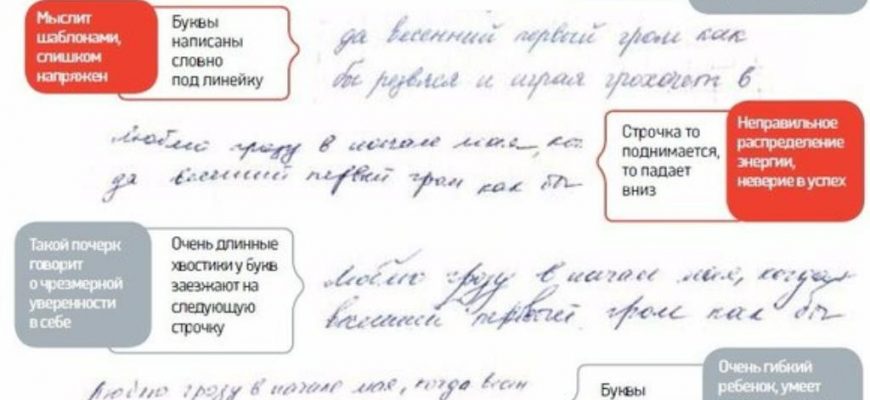 Мыслит
шаблонами,
слишком
напряжен
Буквы
написаны
словно
под линейку
да весенний первый гром как
бы резвяся и играя грохочет в
Люблю грозу в начале мая, ког
да весенний первый гром как бы
Строчка то
поднимается,
то падает
вниз
Неправильное
распределение
энергии,
неверие в успех
Такой почерк
говорит
о чрезмерной
уверенности
в себе
Очень длинные
хвостики у букв
заезжают на
следующую
строчку
Люблю грозу в начале мая, когда
весенний первый гром как бы
Люблю грозу в начале мая, когда весен
Буквы
Очень гибкий
ребенок, умеет